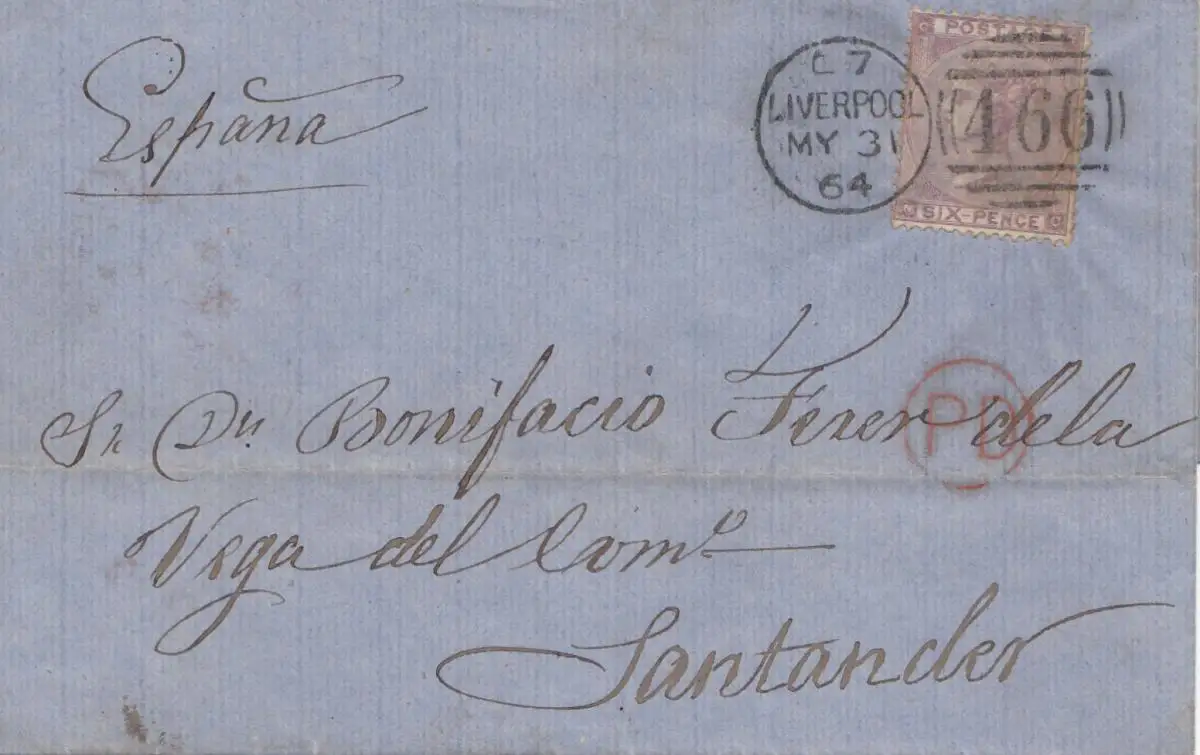 España
C 7
LIVERPOOL
MY 31
64
466
POSTAGE
SIX-PENCE
PD
Sr Dn Bonifacio Ferrer de la
Vega del Com.º
Santander